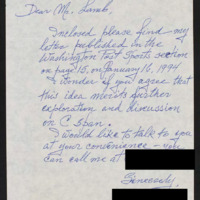 Dear Mr. Lamb,
Inclosed please find - my
letter published in the
Washington Post Sports section
on page 15, on January 16, 1994
I wonder if you agree that
this idea merits further
exploration and discussion
on C Span.
I would like to talk to you
at your convenience - you
can call me at
Sincerely,